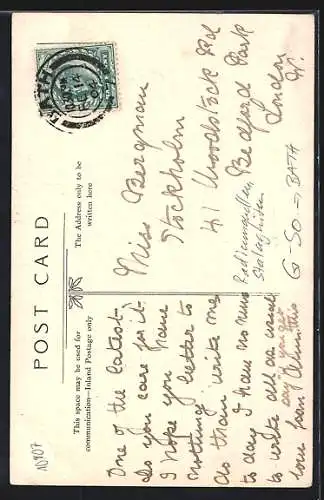 POST CARD
This space may be used for
communication—Inland Postage only
The Address only to be
written here
BATH
One of the latest
Do you care for it
I hope you have
nothing better to
do than write me
to day I have no news
to write all as usual
say you get
love from this
Miss Bergman
Stockholm
41 Woodstock Rd
Bedford Park
London
W.
G-SO → BATH
10907